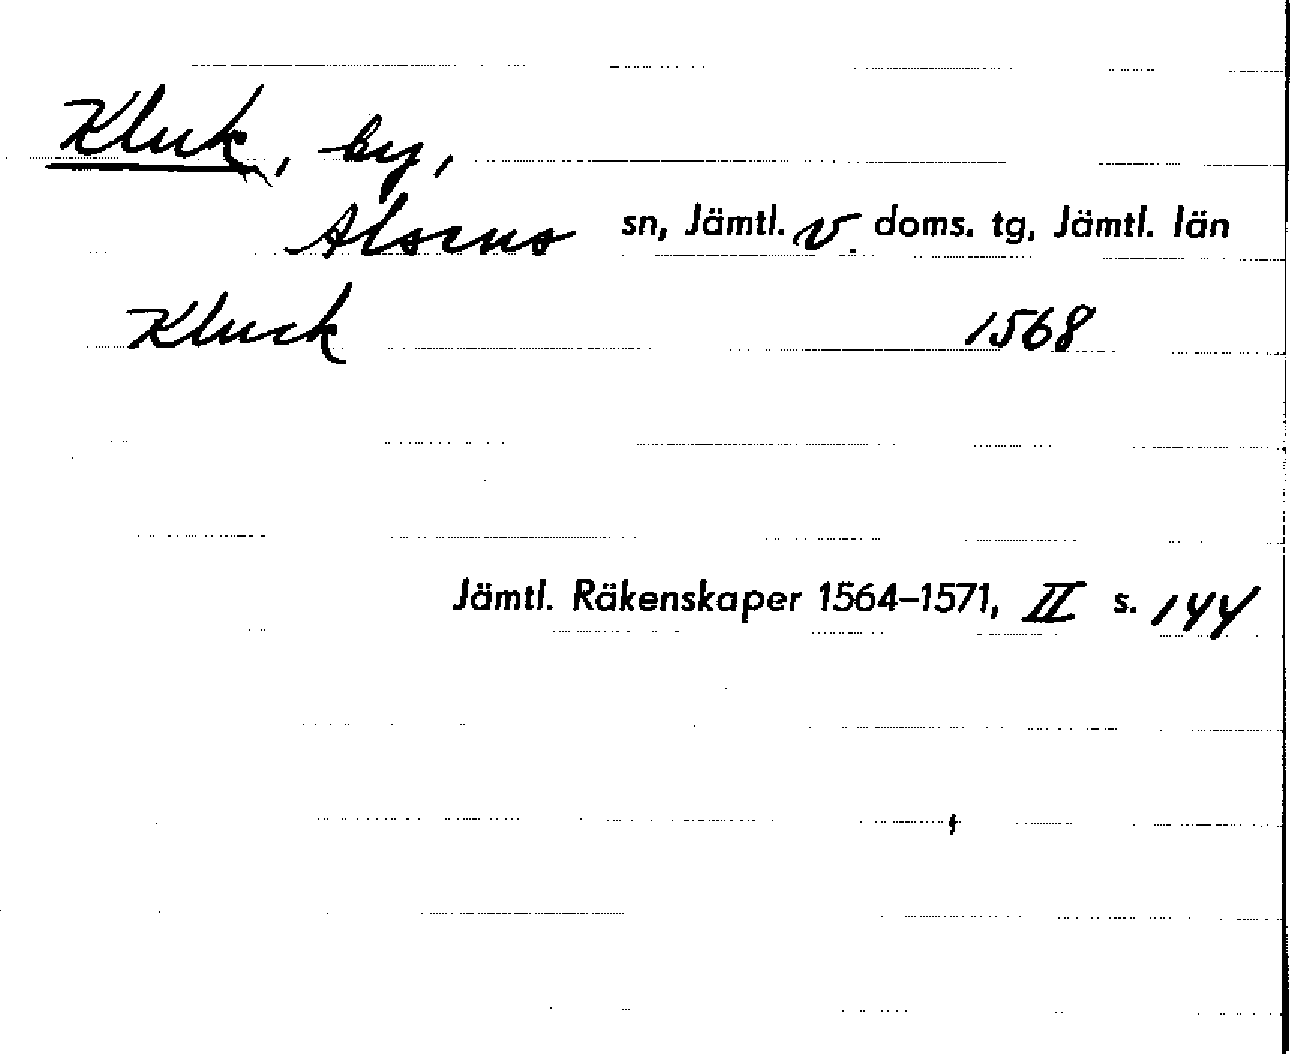 Kluk, by,
Alsens sn, Jämtl. v. doms. tg, Jämtl. län
Kluck 1568
Jämtl. Räkenskaper 1564–1571, II s. 144